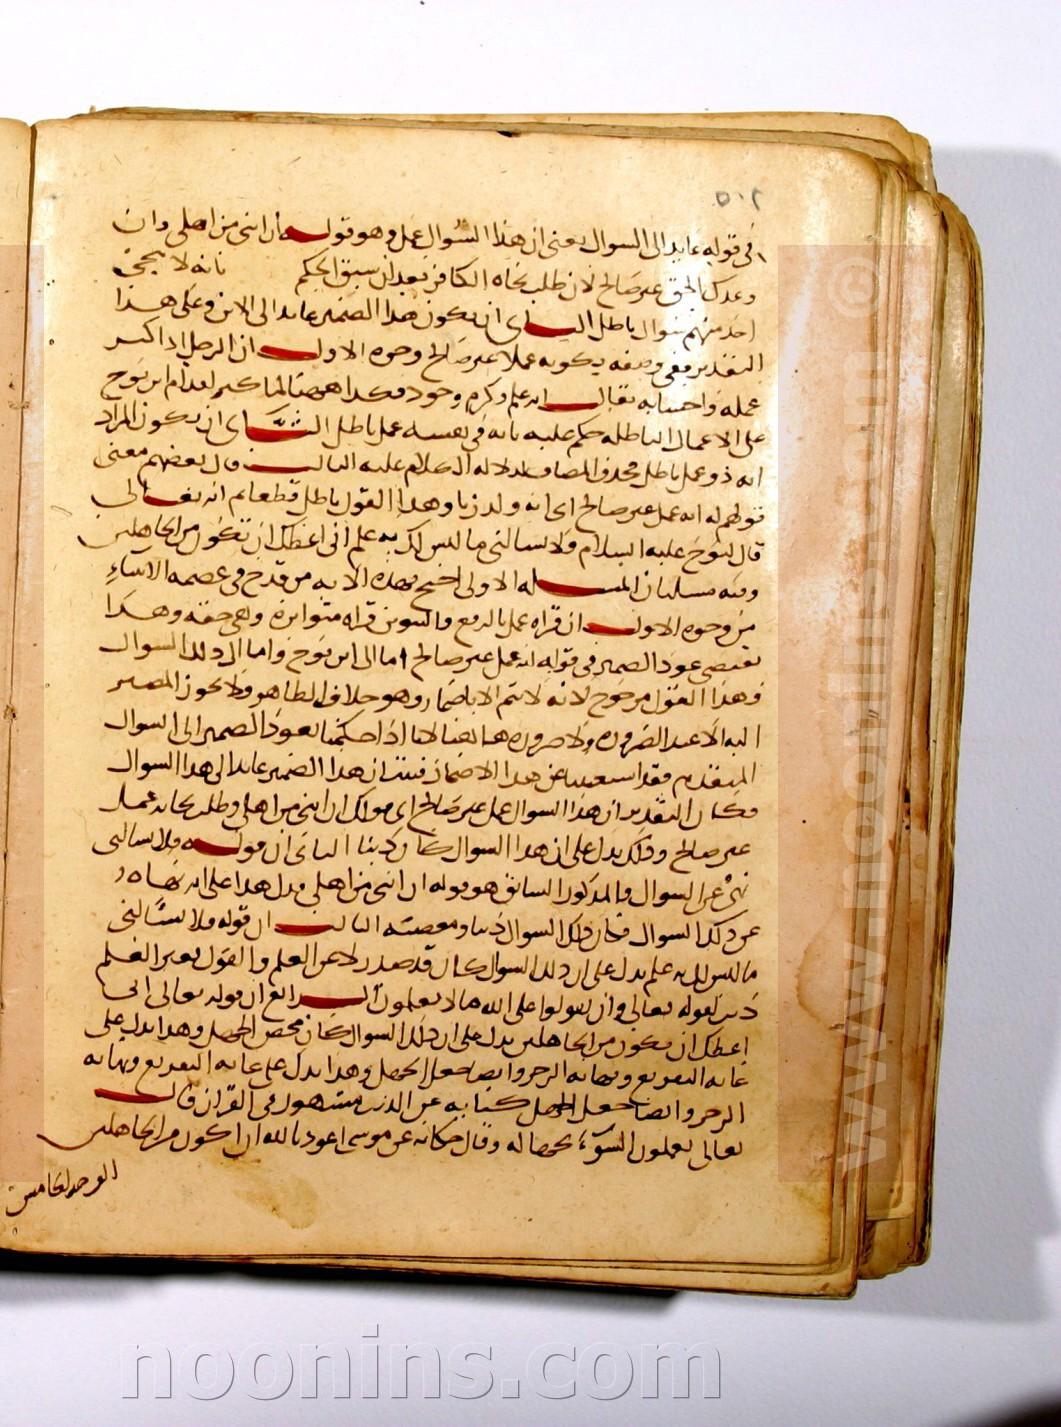 ٥٠٢
في قوله عايد الى السوال يعنى ان هذا السوال عمل وهو قوله ان ابنى من اهلى وان
وعدك الحق غير صالح لان طلب نجاه الكافر بعد ان سبق الحكم بانه لا ينجى
احد منهم سوال باطل الثانى ان يكون هذا الضمير عايدا الى الابن وعلى هذا
التقدير ففى وصفه بكونه عملا غير صالح وجوه الاول ان الرجل اذا كثر
عمله واحسانه يقال انه علم وكرم وجود فكذا ههنا لما كثر اقدام ابن نوح
على الاعمال الباطله حكم عليه بانه فى نفسه عمل باطل الثانى ان يكون المراد
انه ذو عمل باطل فحذف المضاف لدلاله الكلام عليه الثالث قال بعضهم معنى
قولهم له انه عمل غير صالح اى انه ولد زنا وهذا القول باطل قطعا ثم انه تعالى
قال لنوح عليه السلام فلا تسالنى ما ليس لك به علم انى اعظك ان تكون من الجاهلين
وفيه مسلتان المسله الاولى احتج بهذه الايه من قدح فى عصمه الانبياء
من وجوه الاول ان قراه عمل بالرفع والتنوين قراه متواتره وهى حقه وهذا
يقتضى عود الضمير فى قوله انه عمل غير صالح اما الى ابن نوح واما الى ذلك السوال
فهذا القول مرجوح لانه لا يتم الا باضمار وهو خلاف الظاهر ولا يجوز المصير
اليه الا عند الضروره ولا ضروره هاهنا لانا اذا حكمنا بعود الضمير الى السوال
المتقدم فقد استغنينا عن هذا الاضمار فثبت ان هذا الضمير عايد الى هذا السوال
فكان التقدير ان هذا السوال عمل غير صالح اى قولك ان ابنى من اهلى وطلب نجاته عمل
غير صالح وذلك يدل على ان هذا السوال كان ذنبا الثانى ان قوله فلا تسالنى
نهى عن السوال والمذكور السابق هو قوله ان ابنى من اهلى فدل هذا على انه نهاه
عن ذلك السوال فكان ذلك السوال ذنبا ومعصيه الثالث ان قوله فلا تسالنى
ما ليس لك به علم يدل على ان ذلك السوال كان قد صدر لا عن العلم والقول بغير العلم
ذنب لقوله تعالى وان تقولوا على الله ما لا تعلمون الرابع ان قوله تعالى انى
اعظك ان تكون من الجاهلين يدل على ان ذلك السوال كان محض الجهل وهذا يدل على
غايه التقريع ونهايه الزجر وايضا جعل الجهل وهذا يدل على غايه التقريع ونهايه
الزجر وايضا جعل الجهل كنايه عن الذنب مشهور فى القران قال
تعالى يعملون السوء بجهاله وقال حكايه عن موسى اعوذ بالله ان اكون من الجاهلين
الوجه الخامس
www.noonins.com ©
noonins.com